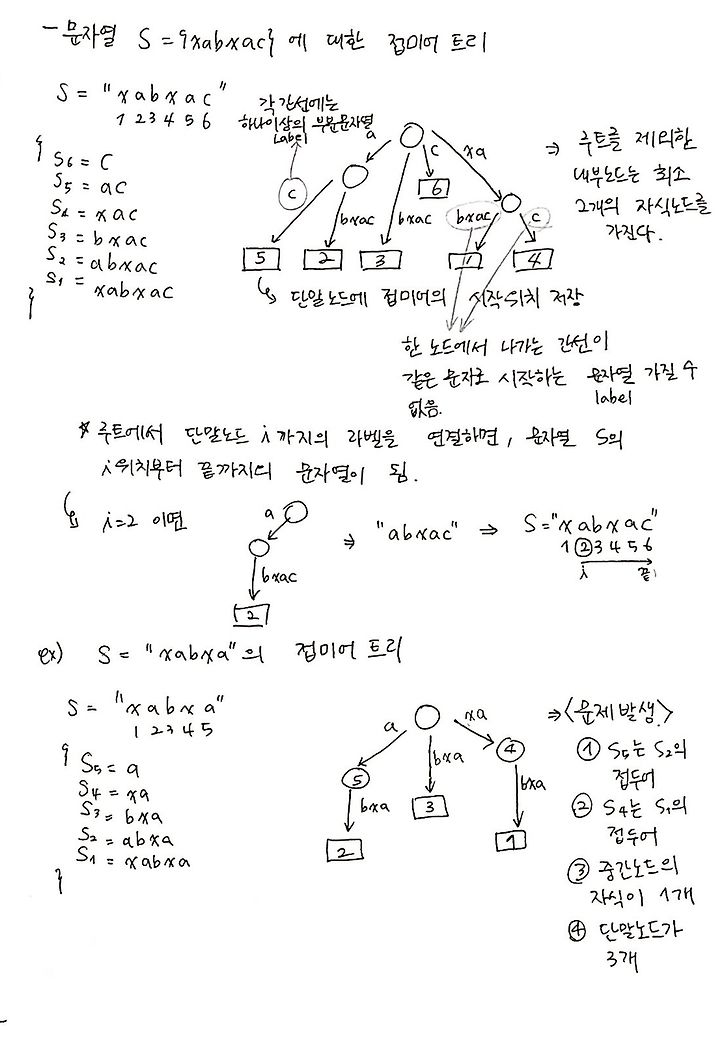 - 문자열 S = {xabxac} 에 대한 접미어 트리
S = "xabxac"
1 2 3 4 5 6
{
S6 = c
S5 = ac
S4 = xac
S3 = bxac
S2 = abxac
S1 = xabxac
}
각 간선에는
하나이상의 부분문자열
label
a
c
xa
c
6
bxac
bxac
bxac
c
5
2
3
1
4
⇒ 루트를 제외한
내부노드는 최소
2개의 자식노드를
가진다.
↳ 단말노드에 접미어의 시작위치 저장
한 노드에서 나가는 간선이
같은 문자로 시작하는 문자열 가질 수
label
없음.
* 루트에서 단말노드 i까지의 라벨을 연결하면, 문자열 S의
i위치부터 끝까지의 문자열이 됨.
↳ i=2 이면
a
bxac
2
⇒ "abxac" ⇒ S="xabxac"
1 ② 3 4 5 6
i 끝
ex) S = "xabxa"의 접미어 트리
S = "xabxa"
1 2 3 4 5
{
S5 = a
S4 = xa
S3 = bxa
S2 = abxa
S1 = xabxa
}
a
xa
bxa
5
4
bxa
3
bxa
2
1
⇒ <문제발생>
① S5는 S2의
접두어
② S4는 S1의
접두어
③ 중간노드의
자식이 1개
④ 단말노드가
3개